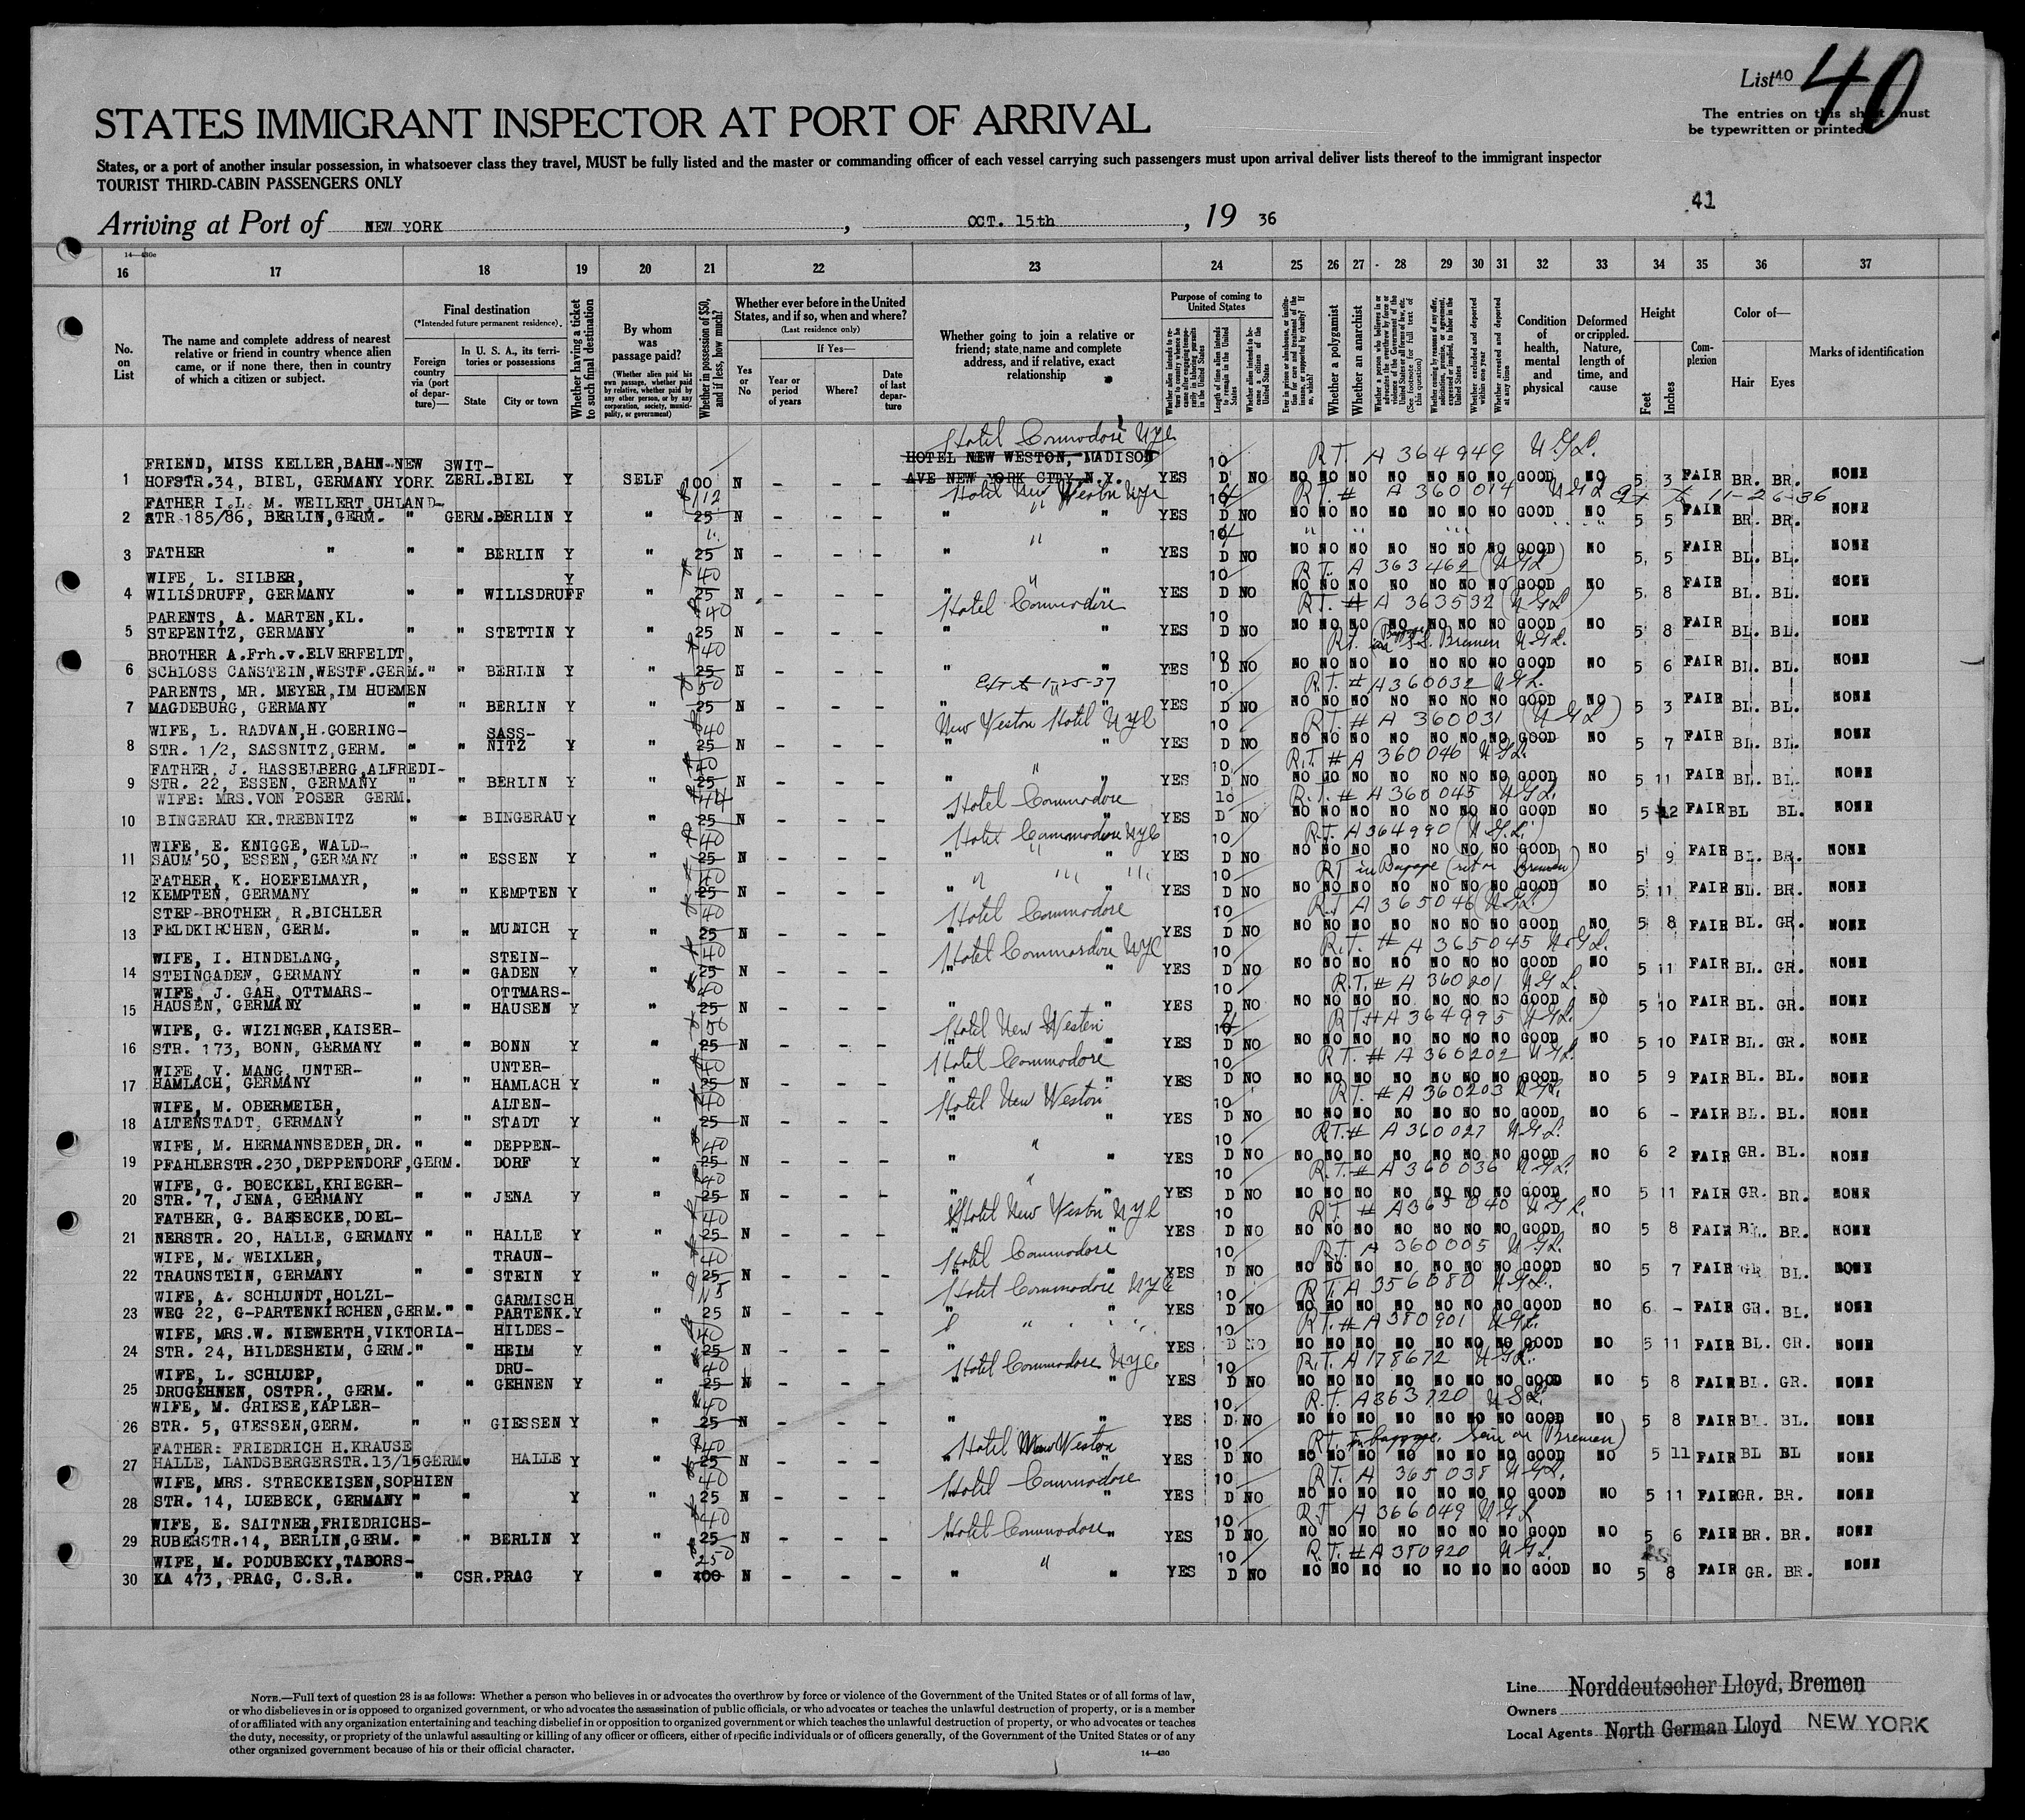 List 40 40
STATES IMMIGRANT INSPECTOR AT PORT OF ARRIVAL
The entries on this sheet must
be typewritten or printed.
States, or a port of another insular possession, in whatsoever class they travel, MUST be fully listed and the master or commanding officer of each vessel carrying such passengers must upon arrival deliver lists thereof to the immigrant inspector
TOURIST THIRD-CABIN PASSENGERS ONLY
41
Arriving at Port of NEW YORK, OCT. 15th, 19 36
16 17 18 19 20 21 22 23 24 25 26 27 28 29 30 31 32 33 34 35 36 37
No. on List
The name and complete address of nearest relative or friend in country whence alien came, or if none there, then in country of which a citizen or subject.
Final destination
(*Intended future permanent residence)
Foreign country via (port of departure)—
In U. S. A., its territories or possessions
State
City or town
Whether having a ticket to such final destination
By whom was passage paid?
(Whether alien paid his own passage, whether paid by relative, whether paid by any other person, or by any corporation, society, municipality, or government)
Whether in possession of $50, and if less, how much?
Whether ever before in the United States, and if so, when and where?
(Last residence only)
Yes or No
If Yes—
Year or period of years
Where?
Date of last departure
Whether going to join a relative or friend; state name and complete address, and if relative, exact relationship
Purpose of coming to United States
Length of time alien intends to remain in the United States
Whether alien intends to become a citizen of the United States
Whether a polygamist
Whether an anarchist
Whether excluded and deported within one year
Whether arrested and deported at any time
Condition of health, mental and physical
Deformed or crippled. Nature, length of time, and cause
Height
Feet
Inches
Complexion
Color of—
Hair
Eyes
Marks of identification
Hotel Commodore NYC
1 FRIEND, MISS KELLER, BAHN- NEW SWIT-
HOFSTR.34, BIEL, GERMANY YORK ZERL. BIEL Y SELF 100 N - - - HOTEL NEW WESTON, MADISON AVE NEW YORK CITY N.Y. YES 10 D NO NO NO NO NO NO NO NO GOOD NO 5 3 FAIR BR. BR. NONE
R.T. A 364949 NGL.
2 FATHER I.L. M. WEILERT, UHLAND-
STR 185/86, BERLIN, GERM. " GERM. BERLIN Y " $112 25 N - - - Hotel New Weston NYC YES D NO NO NO NO NO NO NO NO GOOD NO 5 5 FAIR BR. BR. NONE
R.T. # A 360014 NGL 11-26-36
3 FATHER " " " BERLIN Y " 25 N - - - " " YES D NO NO NO NO NO NO NO NO GOOD NO 5 5 FAIR BL. BL. NONE
4 WIFE, L. SILBER,
WILLSDRUFF, GERMANY " " WILLSDRUFF Y " 40 25 N - - - " " YES 10 D NO NO NO NO NO NO NO NO GOOD NO 5 8 FAIR BL. BL. NONE
R.T. A 363462 (NGL)
5 PARENTS, A. MARTEN, KL.
STEPENITZ, GERMANY " " STETTIN Y " 40 25 N - - - Hotel Commodore YES 10 D NO NO NO NO NO NO NO NO GOOD NO 5 8 FAIR BL. BL. NONE
R.T. # A 363532 (NGL)
6 BROTHER A.Frh.v.ELVERFELDT,
SCHLOSS CANSTEIN, WESTF.GERM. " " BERLIN Y " 40 25 N - - - " " YES 10 D NO NO NO NO NO NO NO NO GOOD NO 5 6 FAIR BL. BL. NONE
R.T. Baggage S.S. Bremen NGL.
7 PARENTS, MR. MEYER, IM HUEMEN
MAGDEBURG, GERMANY " " BERLIN Y " 50 25 N - - - 1-25-37 " " YES 10 D NO NO NO NO NO NO NO NO GOOD NO 5 3 FAIR BL. BL. NONE
R.T. # A360032 NGL.
8 WIFE, L. RADVAN, H.GOERING-
STR. 1/2, SASSNITZ, GERM. " " SASS-NITZ Y " 40 25 N - - - New Weston Hotel NYC YES 10 D NO NO NO NO NO NO NO NO GOOD NO 5 7 FAIR BL. BL. NONE
R.T. # A 360031 (NGL)
9 FATHER, J. HASSELBERG, ALFREDI-
STR. 22, ESSEN, GERMANY " " BERLIN Y " 40 25 N - - - " " YES 10 D NO NO NO NO NO NO NO NO GOOD NO 5 11 FAIR BL. BL. NONE
R.T. # A 360046 NGL.
10 WIFE: MRS.VON POSER GERM.
BINGERAU KR.TREBNITZ " " BINGERAU Y " 44 25 N - - - Hotel Commodore YES 10 D NO NO NO NO NO NO NO NO GOOD NO 5 12 FAIR BL BL. NONE
R.T. # A 360045 NGL.
11 WIFE, E. KNIGGE, WALD-
SAUM 50, ESSEN, GERMANY " " ESSEN Y " 40 25 N - - - Hotel Commodore NYC YES 10 D NO NO NO NO NO NO NO NO GOOD NO 5 9 FAIR BL. BR. NONE
R.T. A 364990 (NGL.)
12 FATHER, K. HOEFELMAYR,
KEMPTEN, GERMANY " " KEMPTEN Y " 40 25 N - - - " " YES 10 D NO NO NO NO NO NO NO NO GOOD NO 5 11 FAIR BL. BR. NONE
RT in Baggage (ret on Bremen)
13 STEP-BROTHER, R.BICHLER
FELDKIRCHEN, GERM. " " MUNICH Y " 40 25 N - - - Hotel Commodore YES 10 D NO NO NO NO NO NO NO NO GOOD NO 5 8 FAIR BL. GR. NONE
R.T A 365046 (NGL)
14 WIFE, I. HINDELANG,
STEINGADEN, GERMANY " " STEIN-GADEN Y " 40 25 N - - - Hotel Commordore NYC YES 10 D NO NO NO NO NO NO NO NO GOOD NO 5 11 FAIR BL. GR. NONE
R.T. # A 365045 NGL.
15 WIFE, J. GAH, OTTMARS-
HAUSEN, GERMANY " " OTTMARS-HAUSEN Y " 40 25 N - - - " " YES 10 D NO NO NO NO NO NO NO NO GOOD NO 5 10 FAIR BL. GR. NONE
R.T. # A 360201 NGL.
16 WIFE, G. WIZINGER, KAISER-
STR. 173, BONN, GERMANY " " BONN Y " 50 25 N - - - Hotel New Weston YES D NO NO NO NO NO NO NO NO GOOD NO 5 10 FAIR BL. GR. NONE
RT # A 364995 (NGL.)
17 WIFE, V. MANG, UNTER-
HAMLACH, GERMANY " " UNTER-HAMLACH Y " 40 25 N - - - Hotel Commodore YES 10 D NO NO NO NO NO NO NO NO GOOD NO 5 9 FAIR BL. BL. NONE
R.T. # A 360202 NGL.
18 WIFE, M. OBERMEIER,
ALTENSTADT, GERMANY " " ALTEN-STADT Y " 40 25 N - - - Hotel New Weston YES 10 D NO NO NO NO NO NO NO NO GOOD NO 6 - FAIR BL. BL. NONE
R.T. # A 360203 NGL.
19 WIFE, M. HERMANNSEDER, DR.
PFAHLERSTR.230, DEPPENDORF, GERM. " " DEPPEN-DORF Y " 40 25 N - - - " " YES 10 D NO NO NO NO NO NO NO NO GOOD NO 6 2 FAIR GR. BL. NONE
R.T. # A 360027 NGL.
20 WIFE, G. BOECKEL, KRIEGER-
STR. 7, JENA, GERMANY " " JENA Y " 40 25 N - - - " " YES 10 D NO NO NO NO NO NO NO NO GOOD NO 5 11 FAIR GR. BR. NONE
R.T. # A 360036 NGL.
21 FATHER, G. BAESECKE, DOEL-
NERSTR. 20, HALLE, GERMANY " " HALLE Y " 40 25 N - - - Hotel New Weston NYC YES 10 D NO NO NO NO NO NO NO NO GOOD NO 5 8 FAIR BL. BR. NONE
R.T. # A365040 NGL.
22 WIFE, M. WEIXLER,
TRAUNSTEIN, GERMANY " " TRAUN-STEIN Y " 40 25 N - - - Hotel Commodore YES 10 D NO NO NO NO NO NO NO NO GOOD NO 5 7 FAIR GR BL. NONE
R.T. A 360005 NGL.
23 WIFE, A. SCHLUNDT, HOLZL-
WEG 22, G-PARTENKIRCHEN, GERM. " " GARMISCH PARTENK. Y " 115 25 N - - - Hotel Commodore NYC YES 10 D NO NO NO NO NO NO NO NO GOOD NO 6 - FAIR GR. BL. NONE
R.T. A 356080 NGL.
24 WIFE, MRS.W. NIEWERTH, VIKTORIA-
STR. 24, HILDESHEIM, GERM. " " HILDES-HEIM Y " 40 25 N - - - " " YES 10 D NO NO NO NO NO NO NO NO GOOD NO 5 11 FAIR BL. GR. NONE
R.T. # A 380901 NGL.
25 WIFE, L. SCHLUEP,
DRUGEHNEN, OSTPR., GERM. " " DRU-GEHNEN Y " 40 25 N - - - Hotel Commodore NYC YES 10 D NO NO NO NO NO NO NO NO GOOD NO 5 8 FAIR BL. GR. NONE
R.T. A 178672 NGL.
26 WIFE, M. GRIESE, KAPLER-
STR. 5, GIESSEN, GERM. " " GIESSEN Y " 40 25 N - - - " " YES 10 D NO NO NO NO NO NO NO NO GOOD NO 5 8 FAIR BL. BL. NONE
R.T. A363720 NGL.
27 FATHER: FRIEDRICH H.KRAUSE
HALLE, LANDSBERGERSTR.13/15 GERM. " HALLE Y " 40 25 N - - - Hotel New Weston YES 10 D NO NO NO NO NO NO NO NO GOOD NO 5 11 FAIR BL BL NONE
RT. in baggage. (Bremen)
28 WIFE, MRS. STRECKEISEN, SOPHIEN
STR. 14, LUEBECK, GERMANY " " Y " 40 25 N - - - Hotel Commodore YES 10 D NO NO NO NO NO NO NO NO GOOD NO 5 11 FAIR GR. BR. NONE
R.T. A 365038 NGL.
29 WIFE, E. SAITNER, FRIEDRICHS-
RUBERSTR.14, BERLIN, GERM. " " BERLIN Y " 40 25 N - - - Hotel Commodore " YES 10 D NO NO NO NO NO NO NO NO GOOD NO 5 6 FAIR BR. BR. NONE
R.T A 366049 NGL
30 WIFE, M. PODUBECKY, TABORS-
KA 473, PRAG, C.S.R. " CSR. PRAG Y " 250 400 N - - - " " YES 10 D NO NO NO NO NO NO NO NO GOOD NO 5 8 FAIR GR. BR. NONE
R.T. # A 380920 NGL.
NOTE.—Full text of question 28 is as follows: Whether a person who believes in or advocates the overthrow by force or violence of the Government of the United States or of all forms of law,
or who disbelieves in or is opposed to organized government, or who advocates the assassination of public officials, or who advocates or teaches the unlawful destruction of property, or is a member
of or affiliated with any organization entertaining and teaching disbelief in or opposition to organized government or which teaches the unlawful destruction of property, or who advocates or teaches
the duty, necessity, or propriety of the unlawful assaulting or killing of any officer or officers, either of specific individuals or of officers generally, of the Government of the United States or of any
other organized government because of his or their official character.
14—430
Line Norddeutscher Lloyd, Bremen
Owners
Local Agents North German Lloyd NEW YORK